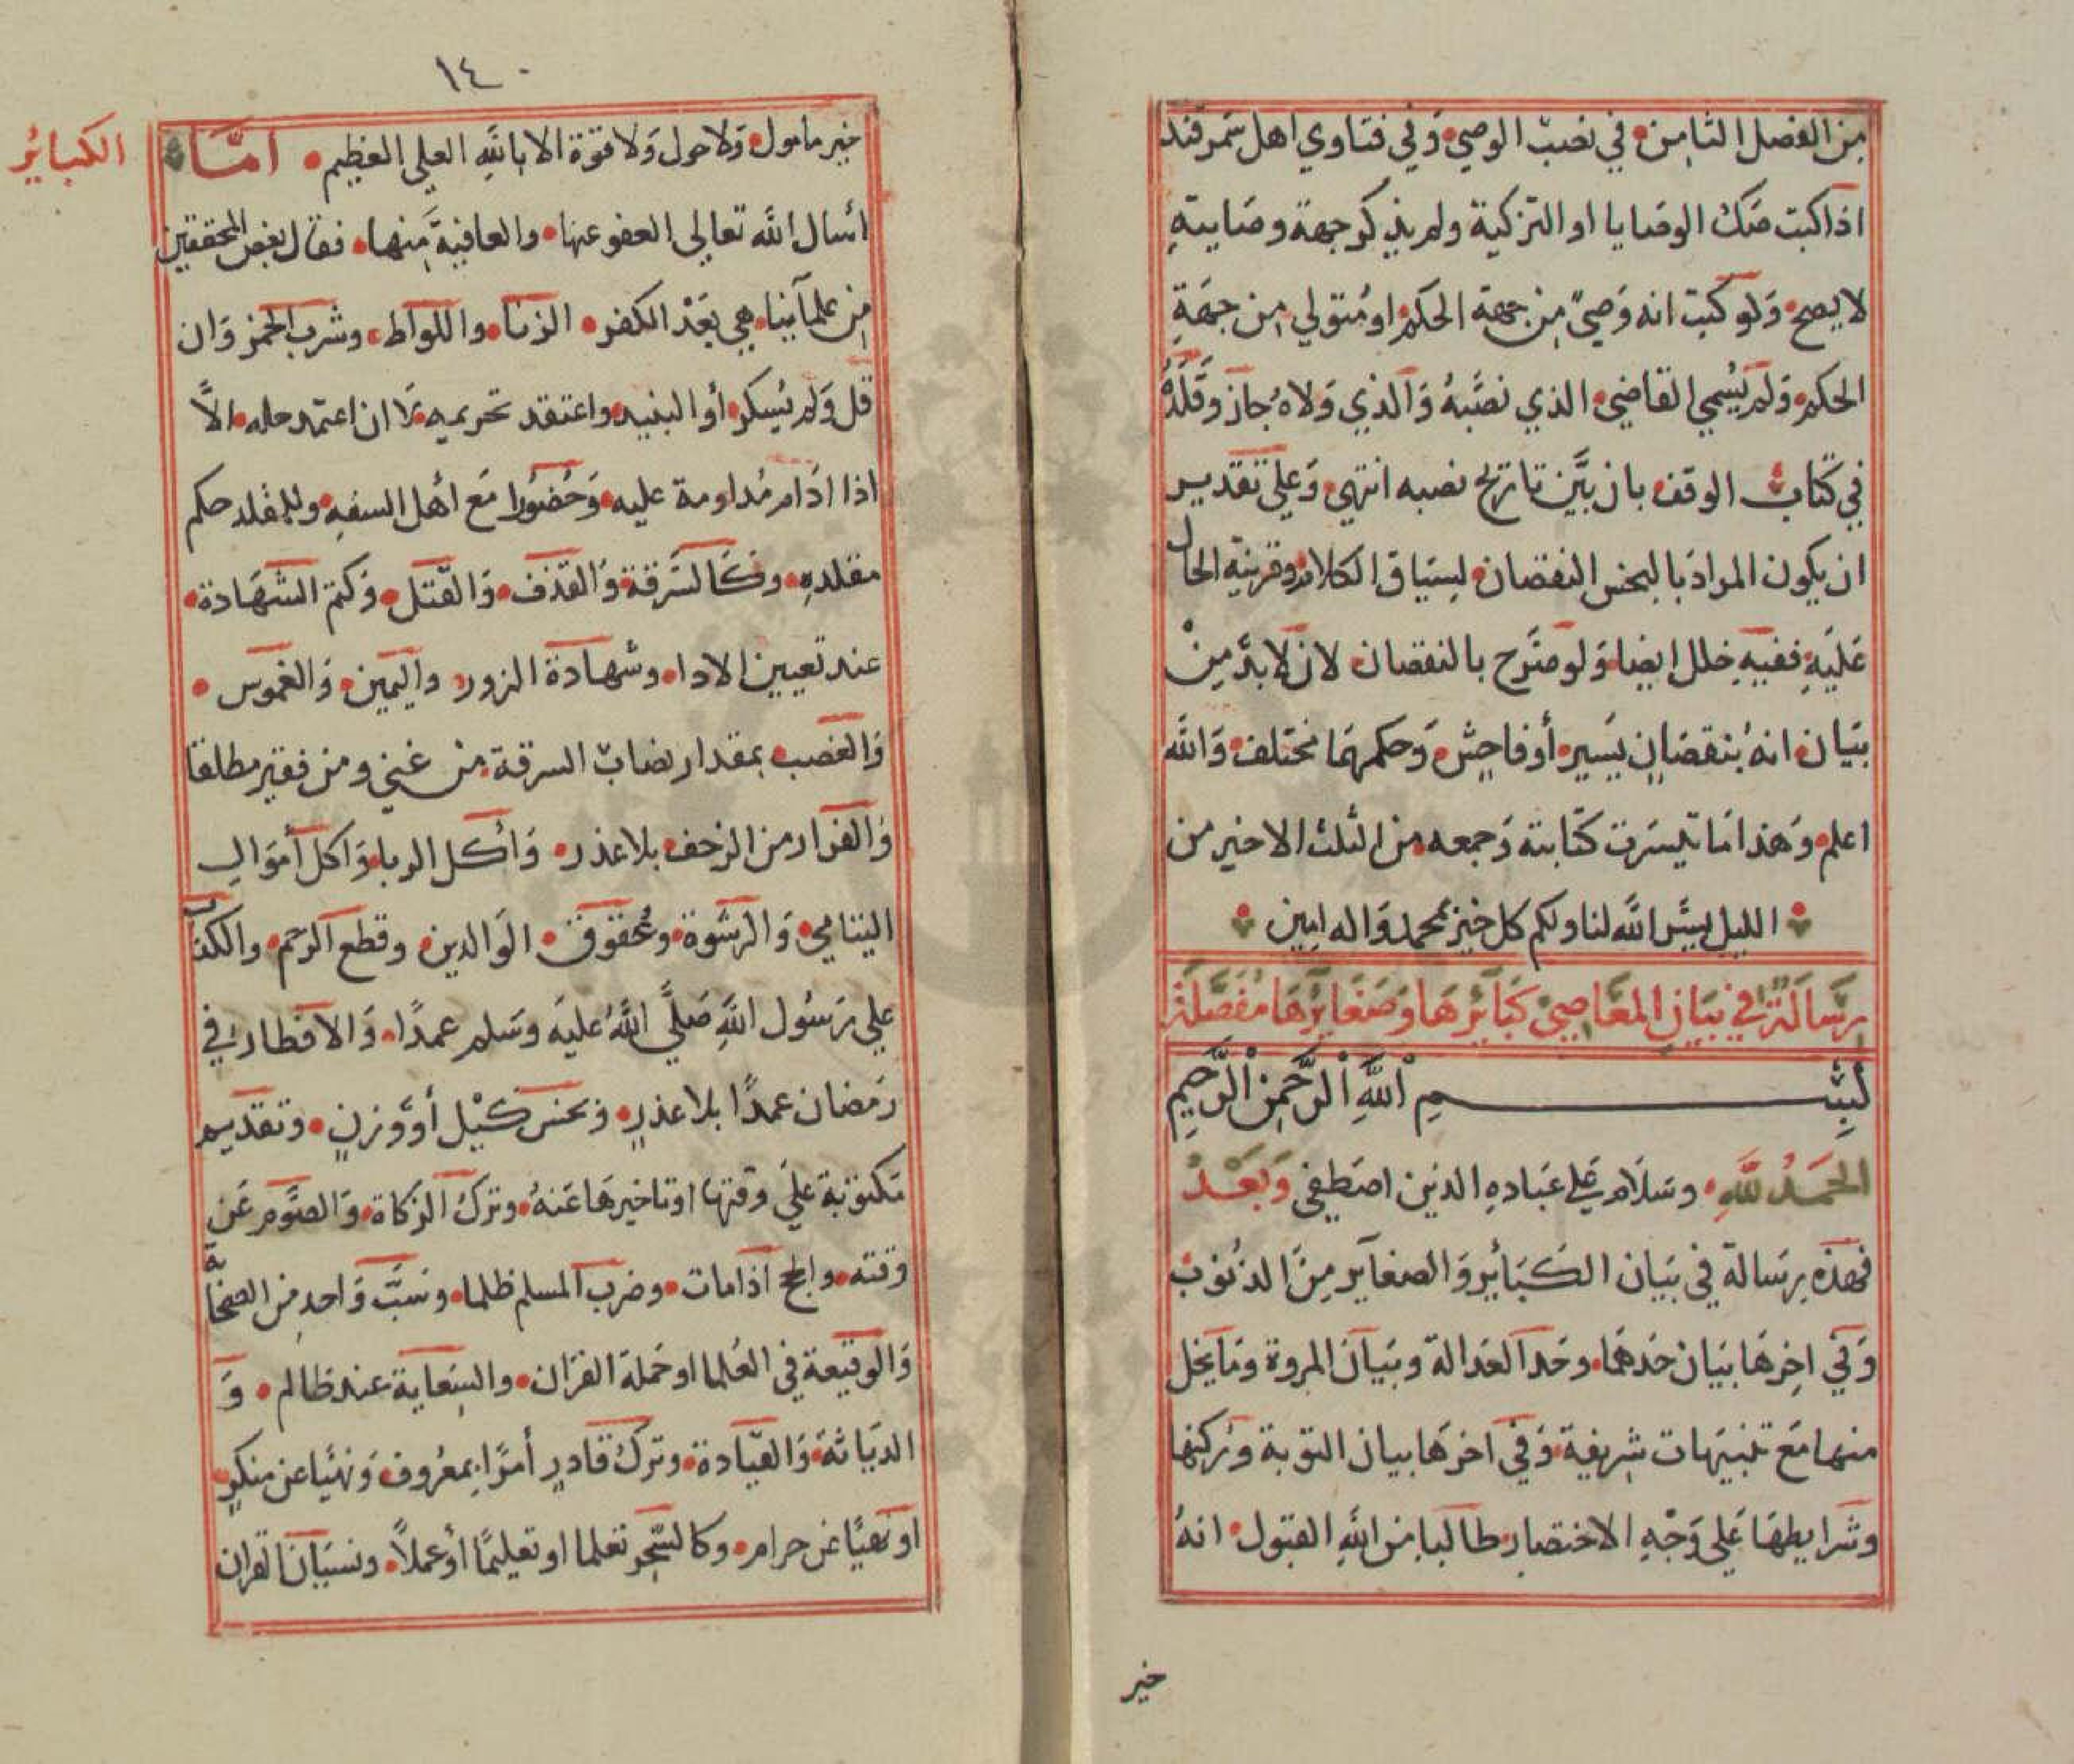 من الفصل الثامن في نصب الوصي وفي فتاوي اهل سمرقند
اذا كتب صك الوصايا او التزكية ولم يذكر جهة وصايته
لا يصح ولو كتب انه وصي من جهة الحكم او متولي من جهة
الحكم ولم يسمي القاضي الذي نصبه والذي ولاه جاز وقلده
في كتاب الوقف بان بين تاريخ نصبه انتهي وعلى تقدير
ان يكون المراد بالبخس النقصان لسياق الكلام وقرينة الحال
عليه ففيه خلل ايضا ولو صرح بالنقصان لانه لابد من
بيان انه بنقصان يسير أو فاحش وحكمهما مختلف والله
اعلم وهذا ما تيسرت كتابته وجمعه من الثلث الاخير من
الليل يسر الله لنا ولكم كل خير بمحمد واله امين
رسالة في بيان المعاصي كبايرها وصغايرها مفصلة
بسم الله الرحمن الرحيم
الحمد لله وسلام على عباده الذين اصطفى وبعد
فهذه رسالة في بيان الكبائر والصغاير من الذنوب
وفي اخرها بيان حدهما وحد العدالة وبيان المروة وما يخل
منها مع تنبيهات شريفة وفي اخرها بيان التوبة وركنها
وشرايطها على وجه الاختصار طالبا من الله القبول انه
خير
١٤٠
الكبائر
خير مامول ولا حول ولا قوة الا بالله العلي العظيم اما
اسال الله تعالى العفو عنها والعافية منها فقال بعض المحققين
من علمآينا هي بعد الكفر الزنا واللواط وشرب الخمر وان
قل ولم يسكر أو النبيذ واعتقد تحريمه لا ان اعتقد حله الا
اذا ادام مداومة عليه وحضورا مع اهل السفه وللمقلد حكم
مقلده وكالسرقة والقذف والقتل وكتم الشهادة
عند تعيين الادا وشهادة الزور واليمين والغموس
والغصب بمقدار نصاب السرقة من غني ومن فقير مطلقا
والفرار من الزحف بلا عذر وأكل الربا واكل أموال
اليتامي والرشوة وعقوق الوالدين وقطع الرحم والكذب
علي رسول الله صلى الله عليه وسلم عمدا والافطار في
رمضان عمدا بلا عذر وبخس كيل أو وزن وتقديم
مكتوبة علي وقتها او تاخيرها عنه وترك الزكاة والصوم عن
وقته والحج اذا مات وضرب المسلم ظلما وسب واحد من الصحابة
والوقيعة في العلما او حملة القران والسعاية عند ظالم و
الدياثة والقيادة وترك قادر أمرا بمعروف ونهيا عن منكر
او نهيا عن حرام وكالسحر تعلما او تعليما أو عملا ونسيان القران